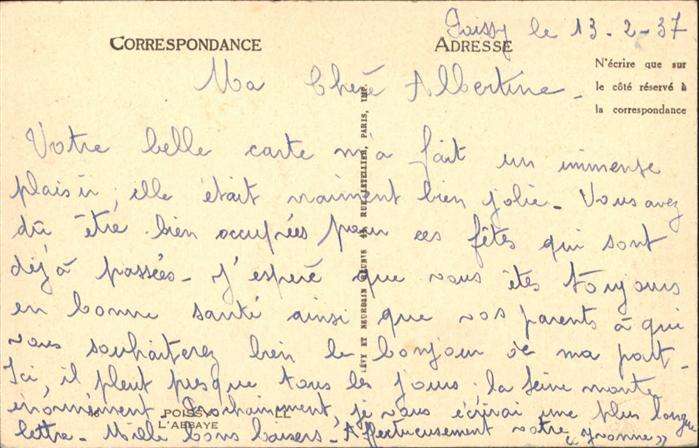 Poissy le 13-2-37
CORRESPONDANCE
ADRESSE
N'écrire que sur
le côté réservé à
la correspondance
Ma Chère Albertine -
Votre belle carte m'a fait un immense
plaisir, elle était vraiment bien jolie - Vous avez
dû être bien occupées pour ces fêtes qui sont
déjà passées - J'espère que vous êtes toujours
en bonne santé ainsi que vos parents à qui
vous souhaiterez bien le bonjour de ma part -
Ici, il pleut presque tous les jours : la Seine monte
énormément. Prochainement, je vous écrirai une plus longue
lettre - Mille bons baisers - Affectueusement votre "Yvonne"
POISSY
L'ABBAYE
LÉVY ET NEURDEIN RÉUNIS 44, RUE LETELLIER, PARIS, IMP.